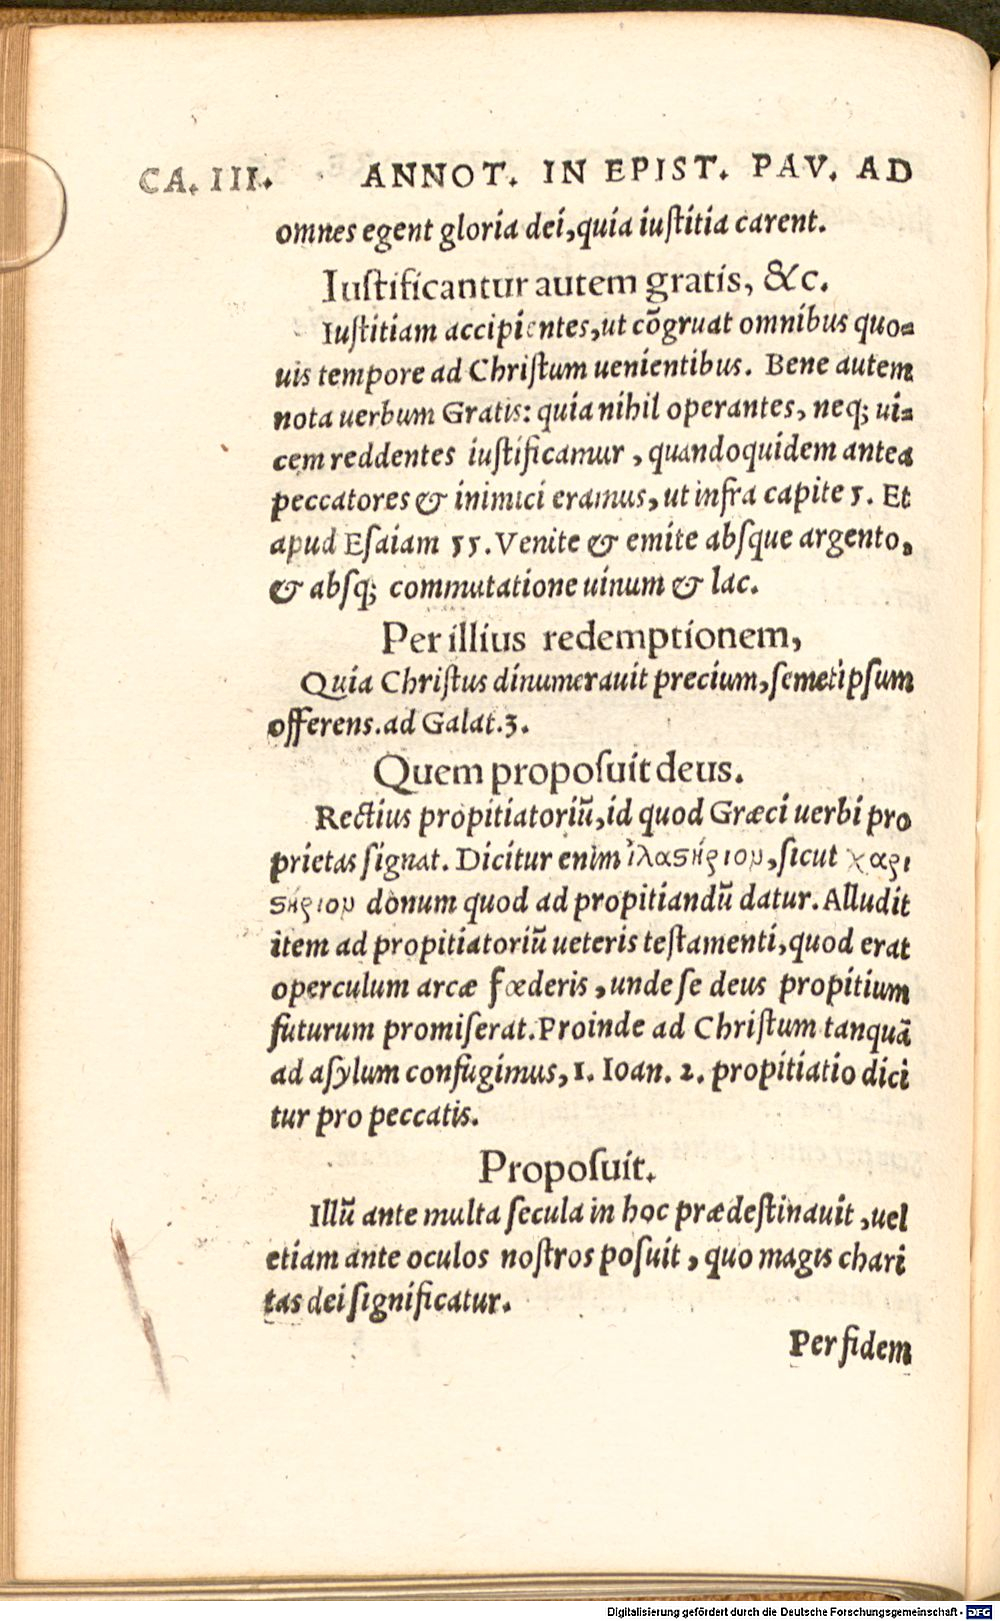 CA. III. ANNOT. IN EPIST. PAV. AD
omnes egent gloria dei, quia iuſtitia carent.
Iuſtificantur autem gratis, &c.
Iuſtitiam accipientes, ut cõgruat omnibus quo-
uis tempore ad Chriſtum uenientibus. Bene autem
nota uerbum Gratis: quia nihil operantes, neq; ui-
cem reddentes iuſtificamur, quandoquidem antea
peccatores & inimici eramus, ut infra capite 5. Et
apud Eſaiam 55. Venite & emite abſque argento,
& abſq; commutatione uinum & lac.
Per illius redemptionem,
Quia Chriſtus dinumerauit precium, ſemetipſum
offerens. ad Galat. 3.
Quem propoſuit deus.
Rectius propitiatoriũ, id quod Græci uerbi pro
prietas ſignat. Dicitur enim ἱλαϛήριον, ſicut χαρι
ϛήριον donum quod ad propitiandũ datur. Alludit
item ad propitiatoriũ ueteris teſtamenti, quod erat
operculum arcæ fœderis, unde ſe deus propitium
futurum promiſerat. Proinde ad Chriſtum tanquã
ad aſylum confugimus, 1. Ioan. 2. propitiatio dici
tur pro peccatis.
Propoſuit.
Illũ ante multa ſecula in hoc prædeſtinauit, uel
etiam ante oculos noſtros poſuit, quo magis chari
tas dei ſignificatur.
Per fidem
Digitalisierung gefördert durch die Deutsche Forschungsgemeinschaft - DFG